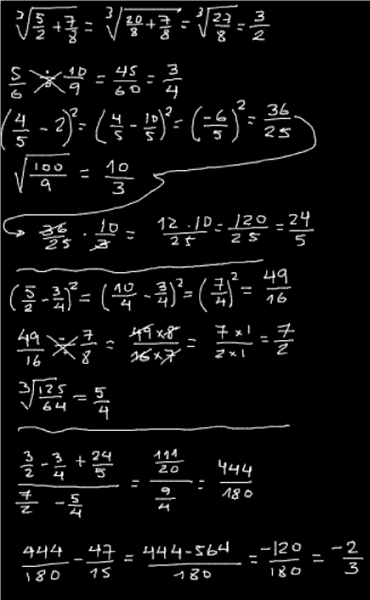 ∛(5/2 + 7/8) = ∛(20/8 + 7/8) = ∛(27/8) = 3/2
5/6 ÷ 10/9 = 45/60 = 3/4
(4/5 - 2)² = (4/5 - 10/5)² = (-6/5)² = 36/25
√(100/9) = 10/3
36/25 · 10/3 = 12·10/25 = 120/25 = 24/5
(5/2 - 3/4)² = (10/4 - 3/4)² = (7/4)² = 49/16
49/16 ÷ 7/8 = 49×8/16×7 = 7×1/2×1 = 7/2
∛(125/64) = 5/4
(3/2 - 3/4 + 24/5)/(7/2 - 5/4) = (111/20)/(9/4) = 444/180
444/180 - 47/15 = 444-564/180 = -120/180 = -2/3